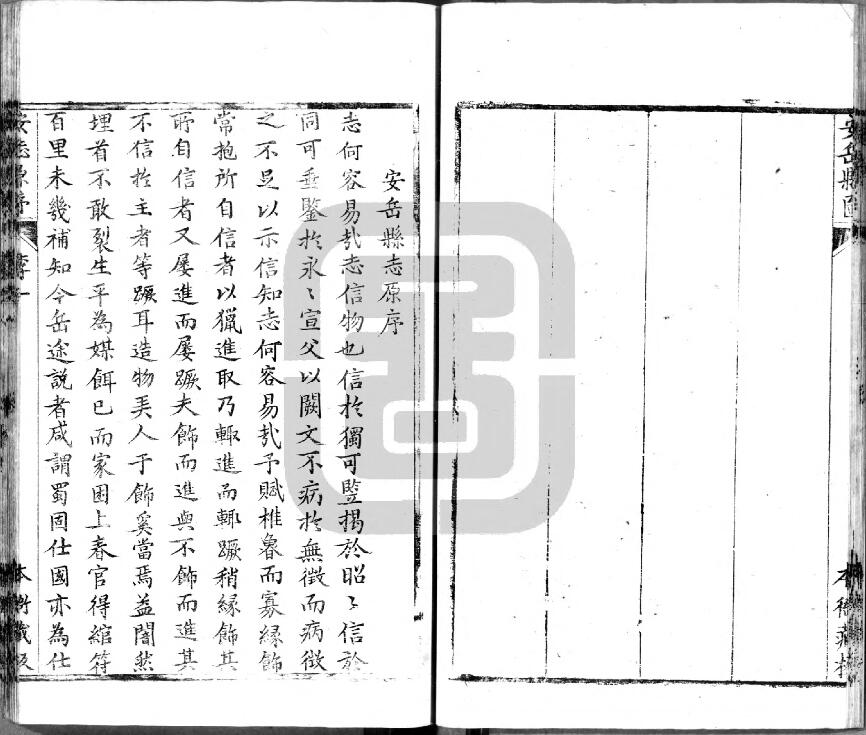 安岳縣圖
本衙藏板
安岳縣志原序
志何容易哉志信物也信於獨可監揭於昭〻信於
同可垂鑒於永〻宣父以闕文不病於無徵而病徵
之不足以示信知志何容易哉予賦椎魯而寡緣飾
常抱所自信者以獵進取乃輙進而輙蹶稍緣飾其
所自信者又屢進而屢蹶夫飾而進與不飾而進其
不信於主者等蹶耳造物美人于飾奚當焉益闇然
埋首不敢裂生平為媒餌已而家困上春官得綰符
百里未幾補知令岳途説者咸謂蜀固仕國亦為仕
安志原序
本衙藏板